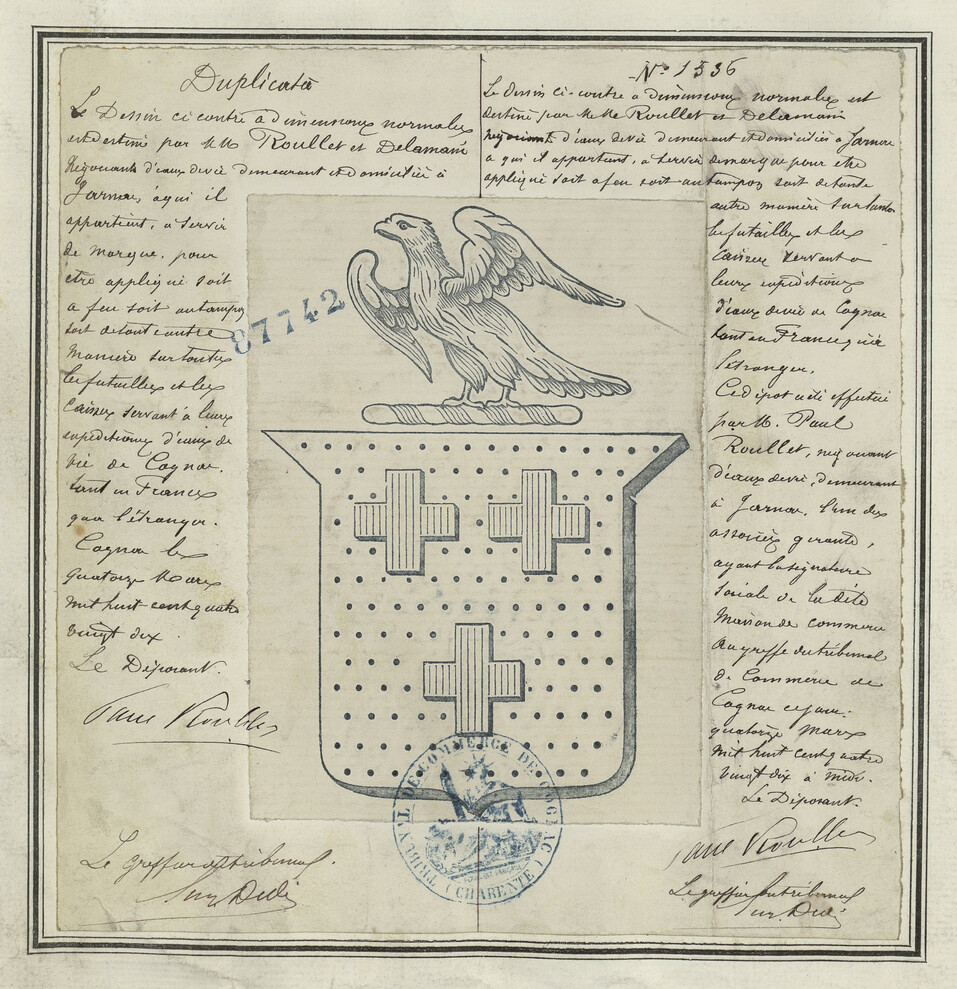 Duplicata
Le Dessin ci contre a dimensions normales
est destiné par MM Roullet et Delamain
Négociants d'eaux de vie demeurant et domiciliés à
Jarnac, à qui il
appartient, à servir
de marque, pour
être appliqué soit
a feu soit au tampon
soit de toute autre
manière sur toutes
les futailles et les
Caisses servant à leurs
expéditions d'eaux de
vie de Cognac,
tant en France
qu'a l'étranger.
Cognac le
quatorze Mars
mil huit cent quatre
vingt dix.
Le Déposant.
Paul Roullet
Le greffier du tribunal.
N° 1336
Le dessin ci-contre a dimensions normales est
destiné par MM. Roullet et Delamain
négociants d'eaux de vie demeurant et domiciliés à Jarnac
a qui il appartient, à servir de marque pour être
appliqué soit a feu soit au tampon soit de toute
autre manière sur toutes
les futailles et les
Caisses servant a
leurs expéditions
d'eaux de vie de Cognac
tant en France qu'à
l'étranger.
Ce dépot a été effectué
par M. Paul
Roullet, négociant
d'eaux de vie, demeurant
à Jarnac, l'un des
associés gérants,
ayant la signature
sociale de la dite
Maison de commerce
au greffe du tribunal
de Commerce de
Cognac ce jour.
quatorze Mars
mil huit cent quatre
vingt dix à midi.
Le Déposant.
Paul Roullet
Le greffier du tribunal
87742
TRIBUNAL DE COMMERCE DE COGNAC
(CHARENTE)